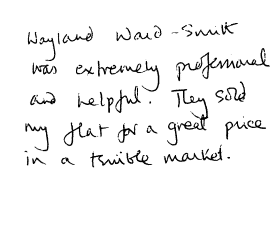 Wayland Ward-Smith
was extremely professional
and helpful. They sold
my flat for a great price
in a terrible market.